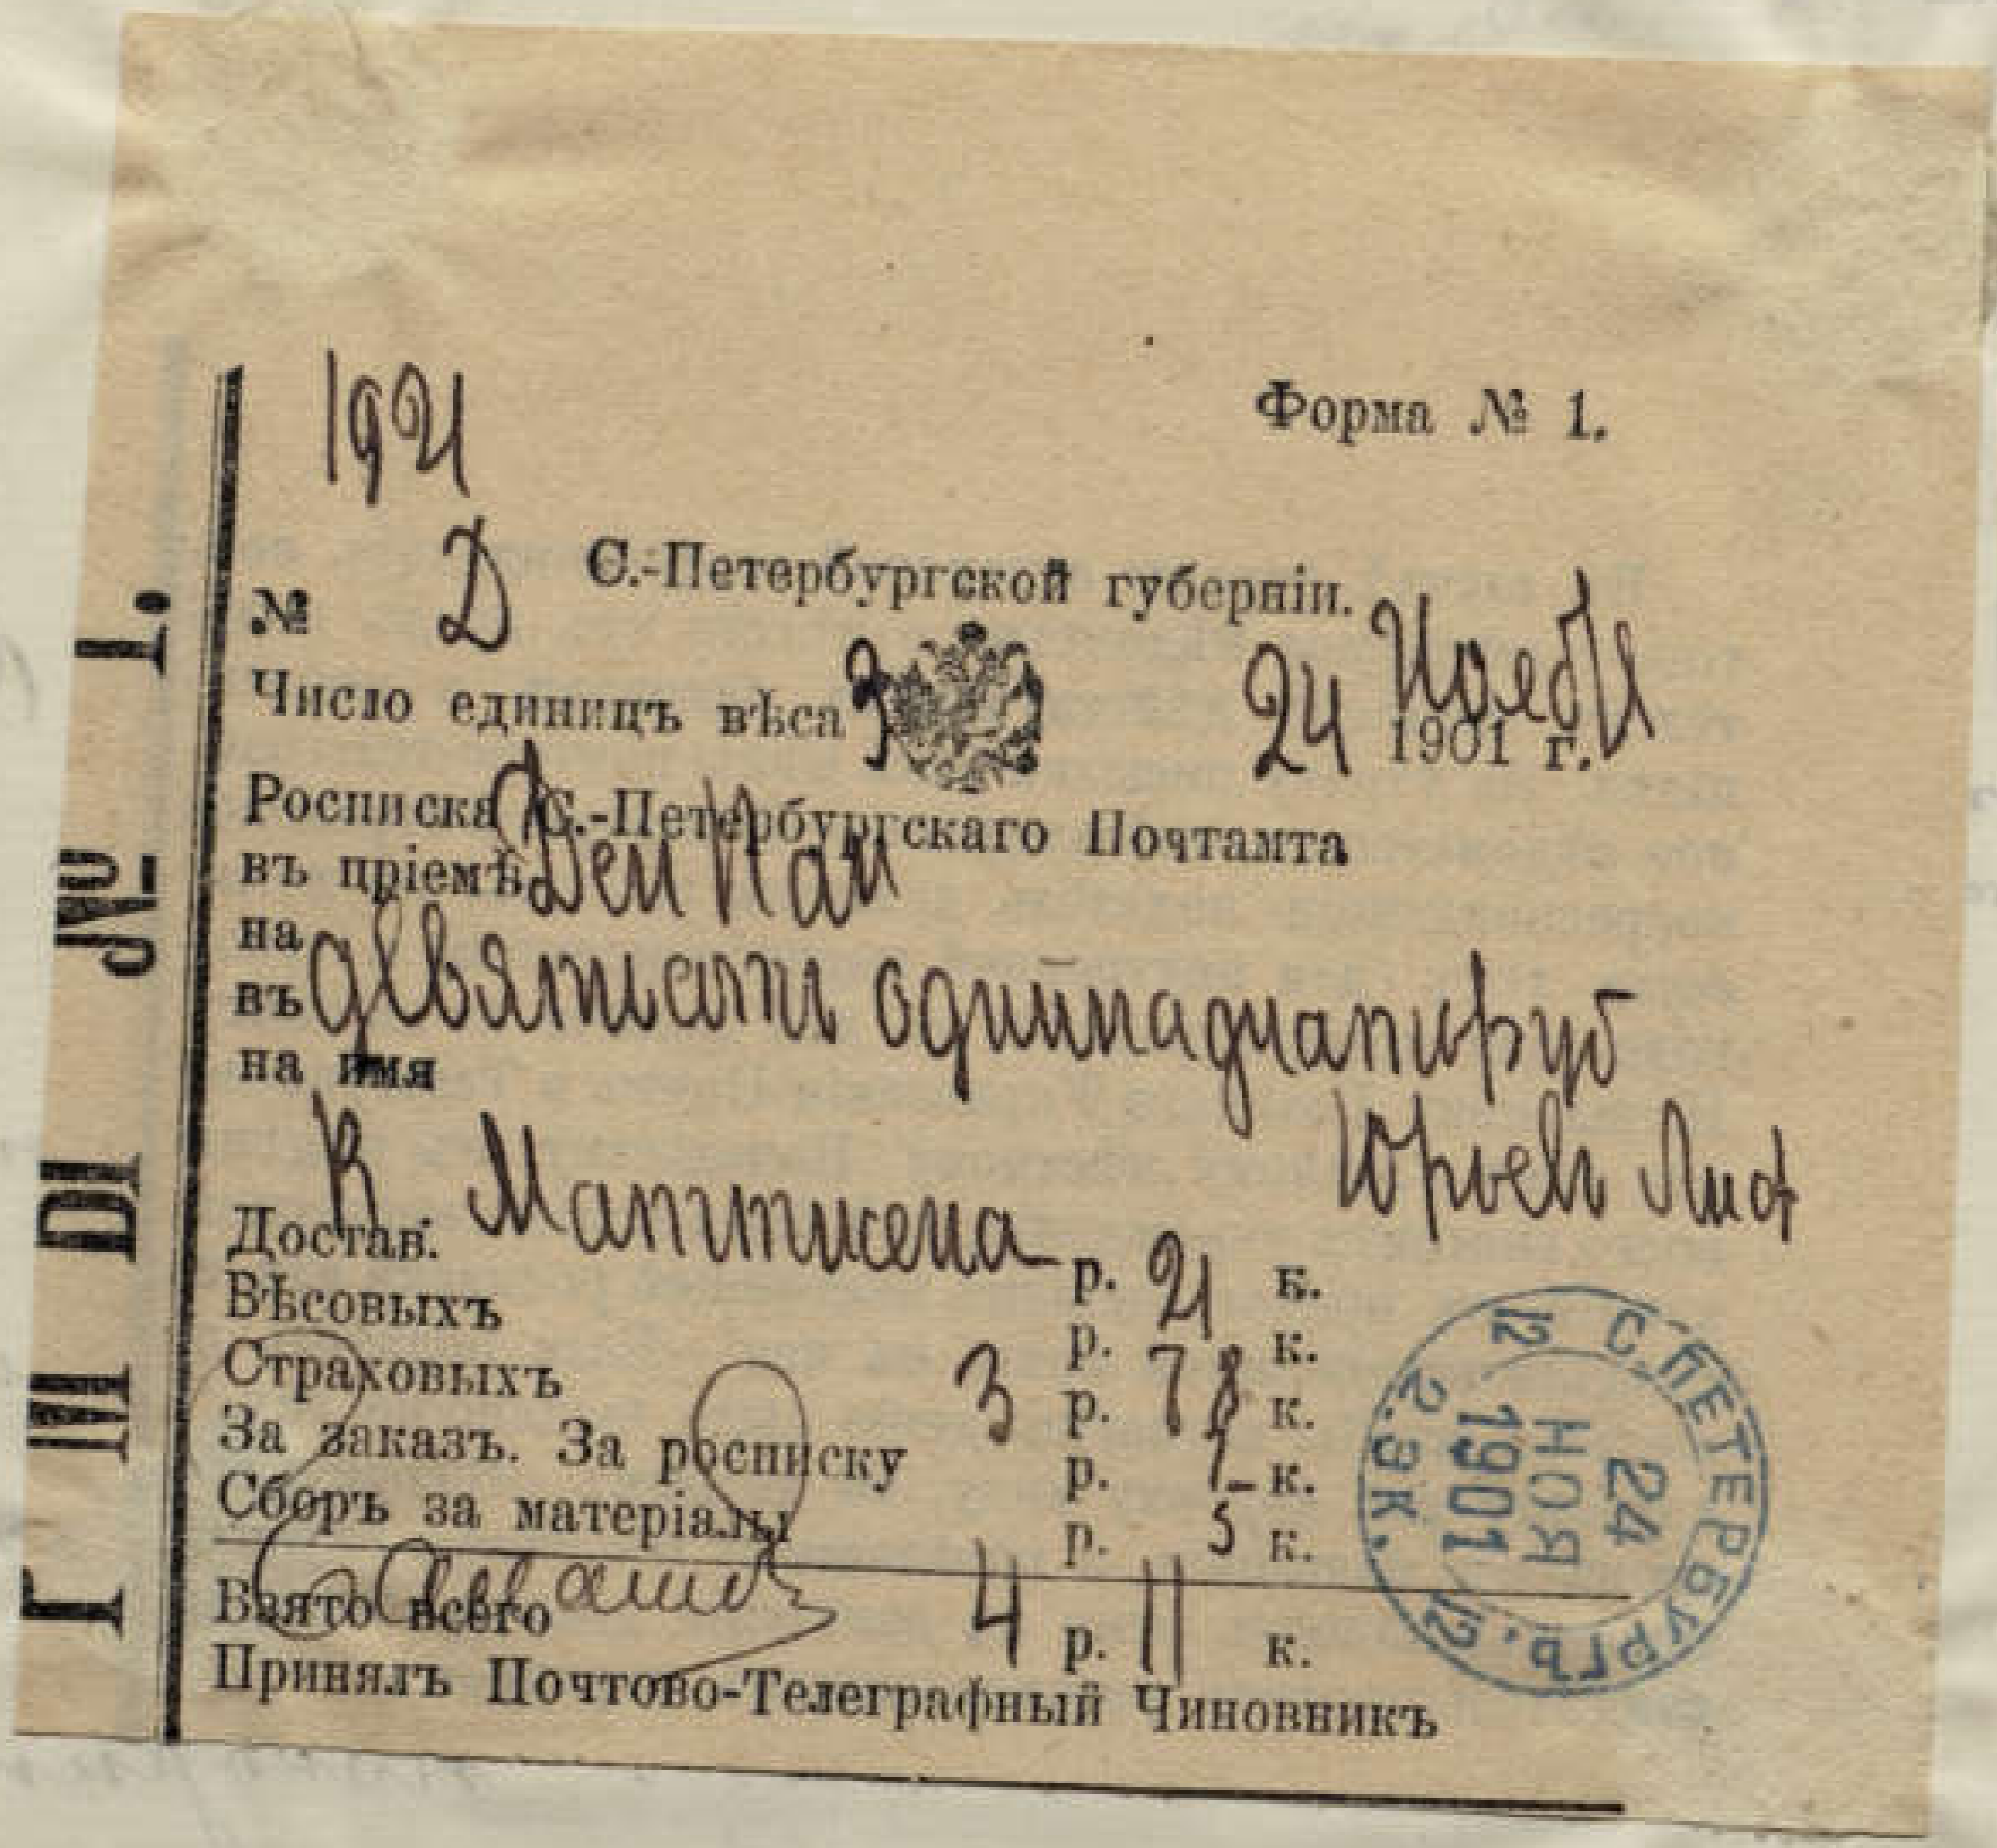 1921
Форма № 1.
Д
С.-Петербургской губерніи.
№
24 Ноябр
Число единицъ вѣса 3
1901 г.
Росписка С.-Петербургскаго Почтамта
въ пріемѣ Ден Пак
на девятьсотъ одиннадцать руб
въ
на имя
Юрьевъ Лиф
К Маттисена
Достав. р. 21 к.
Вѣсовыхъ р. к.
Страховыхъ 3 р. 78 к.
За заказъ. За росписку р. 7 к.
Сборъ за матеріалы р. 5 к.
Взято всего 4 р. 11 к.
Принялъ Почтово-Телеграфный Чиновникъ
С.ПЕТЕРБУРГЪ.
12 2.ЭК. 12
24
НОЯ
1901